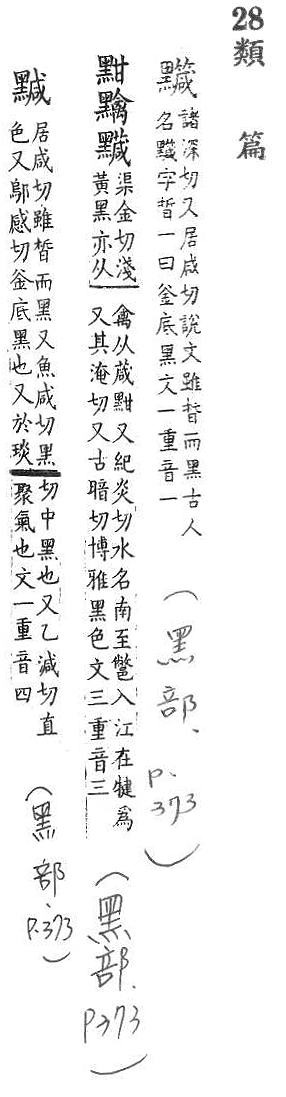 28 類 篇
諸深切又居咸切說文雖皙而黑古人
名字皙一曰釜底黑文一重音一
(黑部、P.373)
黚
渠金切淺
黃黑亦从
禽从葴黚又紀炎切水名南至入江在犍為
又其淹切又古暗切博雅黑色文三重音三
(黑部、P373)
黬
居咸切雖皙而黑又魚咸切黑
色又鄔感切釜底黑也又於琰
切中黑也又乙減切直
聚氣也文一重音四
(黑部、P.373)